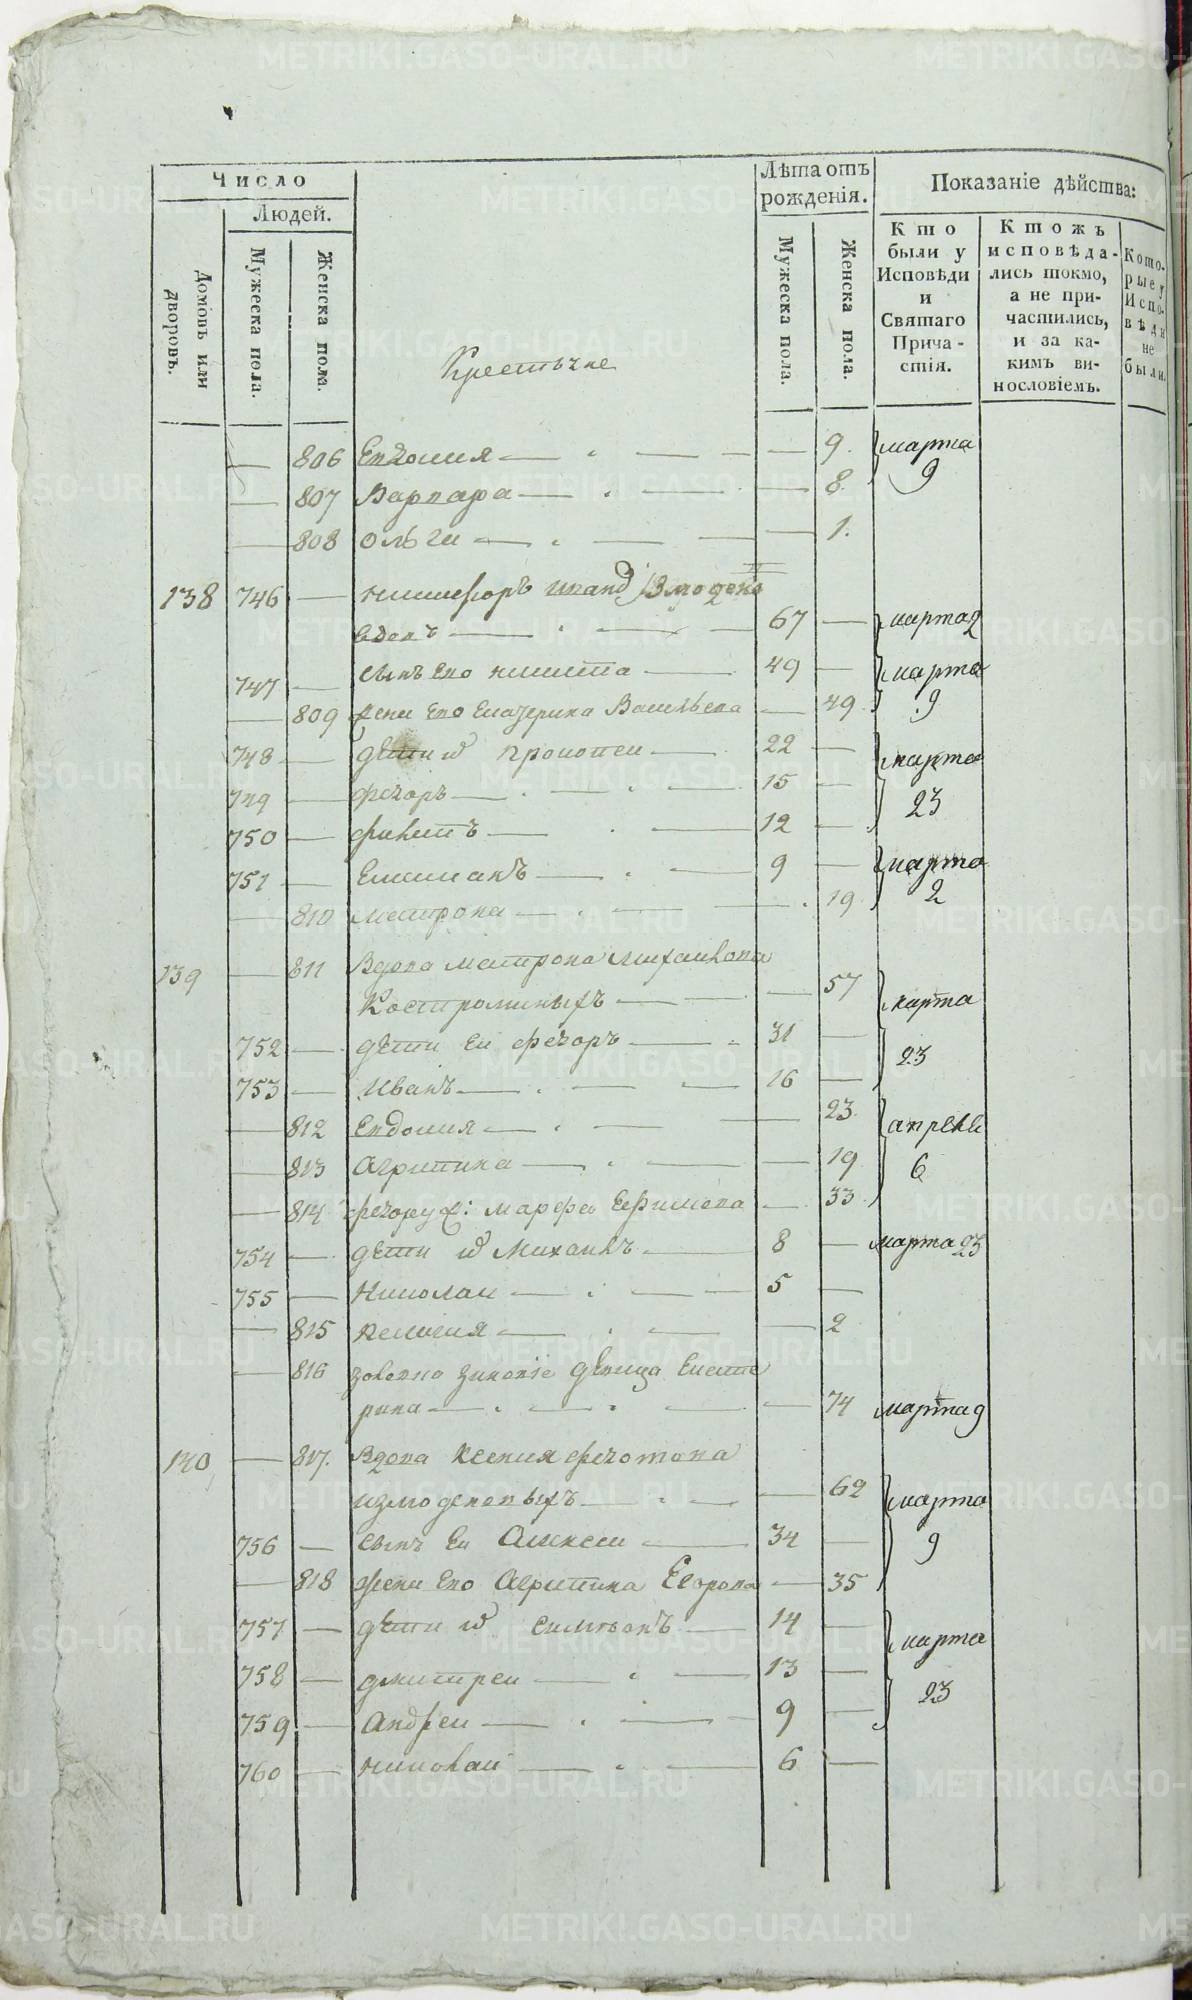 Число
Людей.
Домовъ или дворовъ.
Мужеска пола.
Женска пола.
Крестьяне
Лѣта отъ рожденія.
Мужеска пола.
Женска пола.
Показаніе дѣйства:
Кто были у Исповѣди и Святаго Причастія.
Ктожъ исповѣда-лись токмо, а не при-частились, и за ка-кимъ ви-нословіемъ.
Кото-рые у Испо-вѣди не были.
— 806 Евдокия — — 9. марта
— 807 Варвара — — 8. 9
— 808 Олга — — 1.
138 746 — Никифоръ Измоде
новъ — 67 — марта 2
747 — сынъ Ево Никита — 49 — марта
— 809 жена Ево Екатерина Васильева — 49. 9
748 — дети их Прокопеи — 22 — марта
749 — Федоръ — 15 — 23
750 — Филипъ — 12 —
751 — Емилианъ — 9 — марта
— 810 Матрона — 19. 2
139 — 811 Вдова Матрона Михаилова
Костроминыхъ — — 57 марта
752 — дети Ея Федоръ — 31 — 23
753 — Иванъ — 16 —
— 812 Евдокия — — 23. апреля
— 813 Агрипина — — 19 6
— 814 Федору ж: Марфа Ефимова — 33
754 — дети их Михаилъ — 8 — марта 23
755 — Николаи — 5 —
— 815 Келогия — — 2
— 816 девица Екате
рина — — 74 марта 9
140 — 817. Вдова Ксения Федотова
Измоденовыхъ — — 62 марта
756 — сынъ Ея Алексеи — 34 — 9
— 818 жена Ево Агрипина Егорова — 35
757 — дети их Симеонъ — 14 — марта
758 — Дмитреи — 13 — 23
759 — Андреи — 9 —
760 — Николаи — 6 —
METRIKI.GASO-URAL.RU